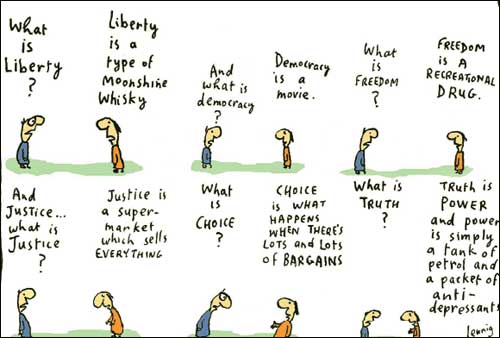 What
is
Liberty
?
Liberty
is a
type of
Moonshine
Whisky
And
what is
democracy
?
Democracy
is a
movie.
What
is
FREEDOM
?
FREEDOM
IS A
RECREATIONAL
DRUG.
And
Justice...
what is
Justice
?
Justice is
a super-
market
which sells
EVERYTHING
What
is
CHOICE
?
CHOICE
is WHAT
HAPPENS
WHEN THERE'S
LOTS and LOTS
of BARGAINS
What is
TRUTH
?
TRUTH is
POWER
and power
is simply
a tank of
petrol and
a packet of
anti-
depressants
Leunig